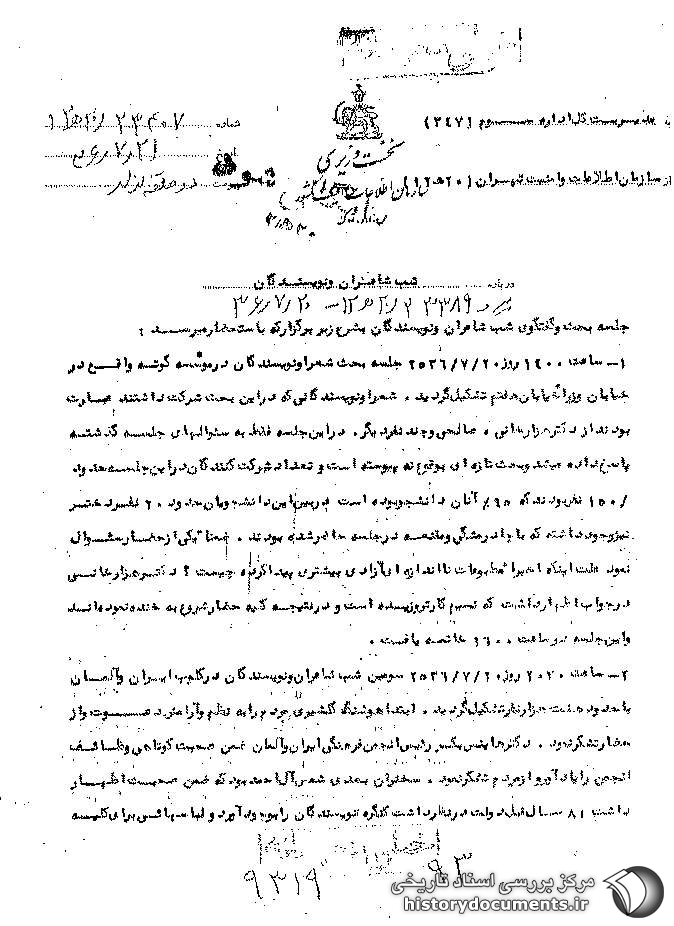 خیلی محرمانه
به مدیریت کل اداره سوم (۳۴۷)
شماره ۲۳۴۰۷/ ۲۰ه۱۲
نخست وزیری
تاریخ ۳۶/۷/۲۱
از سازمان اطلاعات و امنیت تهران (۲۰ه۱۲)
سازمان اطلاعات و امنیت کشور
درباره شب شاعران ونویسندگان
پیرو ۲۳۳۸۹/ ۲۰ه۱۲ - ۳۶/۷/۲۰
جلسه بحث وگفتگوی شب شاعران ونویسندگان بشرح زیر برگزار که باستحضار میرسد :
۱- ساعت ۱۴۰۰ روز ۲۵۳۶/۷/۲۰ جلسه بحث شعرا ونویسندگان در موسسه گوته واقع در
خیابان وزرا خیابان هفتم تشکیل گردید . شعرا ونویسندگانی که در این بحث شرکت داشتند عبارت
بودند از دکتر هزارخانی ، صالحی وچند نفر دیگر . در این جلسه فقط به سئوالهای جلسه گذشته
پاسخ داده میشد وبحث تازه ای بوقوع نه پیوسته است و تعداد شرکت کنندگان در این جلسه حدود
۱۵۰/ نفر بودند که ۹۵٪ آنان دانشجو بوده است در بین این دانشجویان حدود ۲۰ نفر دختر
نیز وجود داشته که با چادر مشگی ومقنعه در جلسه حاضر شده بودند . ضمنا" یکی از حضار سئوال
نمود علت اینکه اخیرا مطبوعات تا اندازه ای آزادی بیشتری پیدا کرده چیست ؟ دکتر هزارخانسی
در جواب اظهار داشت که نسیم کارتر وزیده است و در نتیجه کلیه حضار شروع به خنده نموده اند
واین جلسه در ساعت ۱۶۰۰ خاتمه یافت .
۲- ساعت ۲۰۲۰ روز ۲۵۳۶/۷/۲۰ سومین شب شاعران ونویسندگان در کلوپ ایران وآلمان
با حدود هشت هزار نفر تشکیل گردید . ابتدا هوشنگ گلشیری مردم را به نظم وآرامش دعوت واز
حضار تشکر نمود . دکتر هاینس بکر رئیس انجمن فرهنگی ایران وآلمان ضمن صحبت کوتاهی وظائف
انجمن را یادآور واز مردم تشکر نمود . سخنران بعدی شمس آل احمد بود که ضمن صحبت اظهار
داشت ۸۱ سال قبل دولت در نظر داشت کنگره نویسندگان را بوجود آورد و لباسهائی برای کلیسه
خیلی محرمانه
۹۳
۹۳۱۹
مرکز بررسی اسناد تاریخی
historydocuments.ir